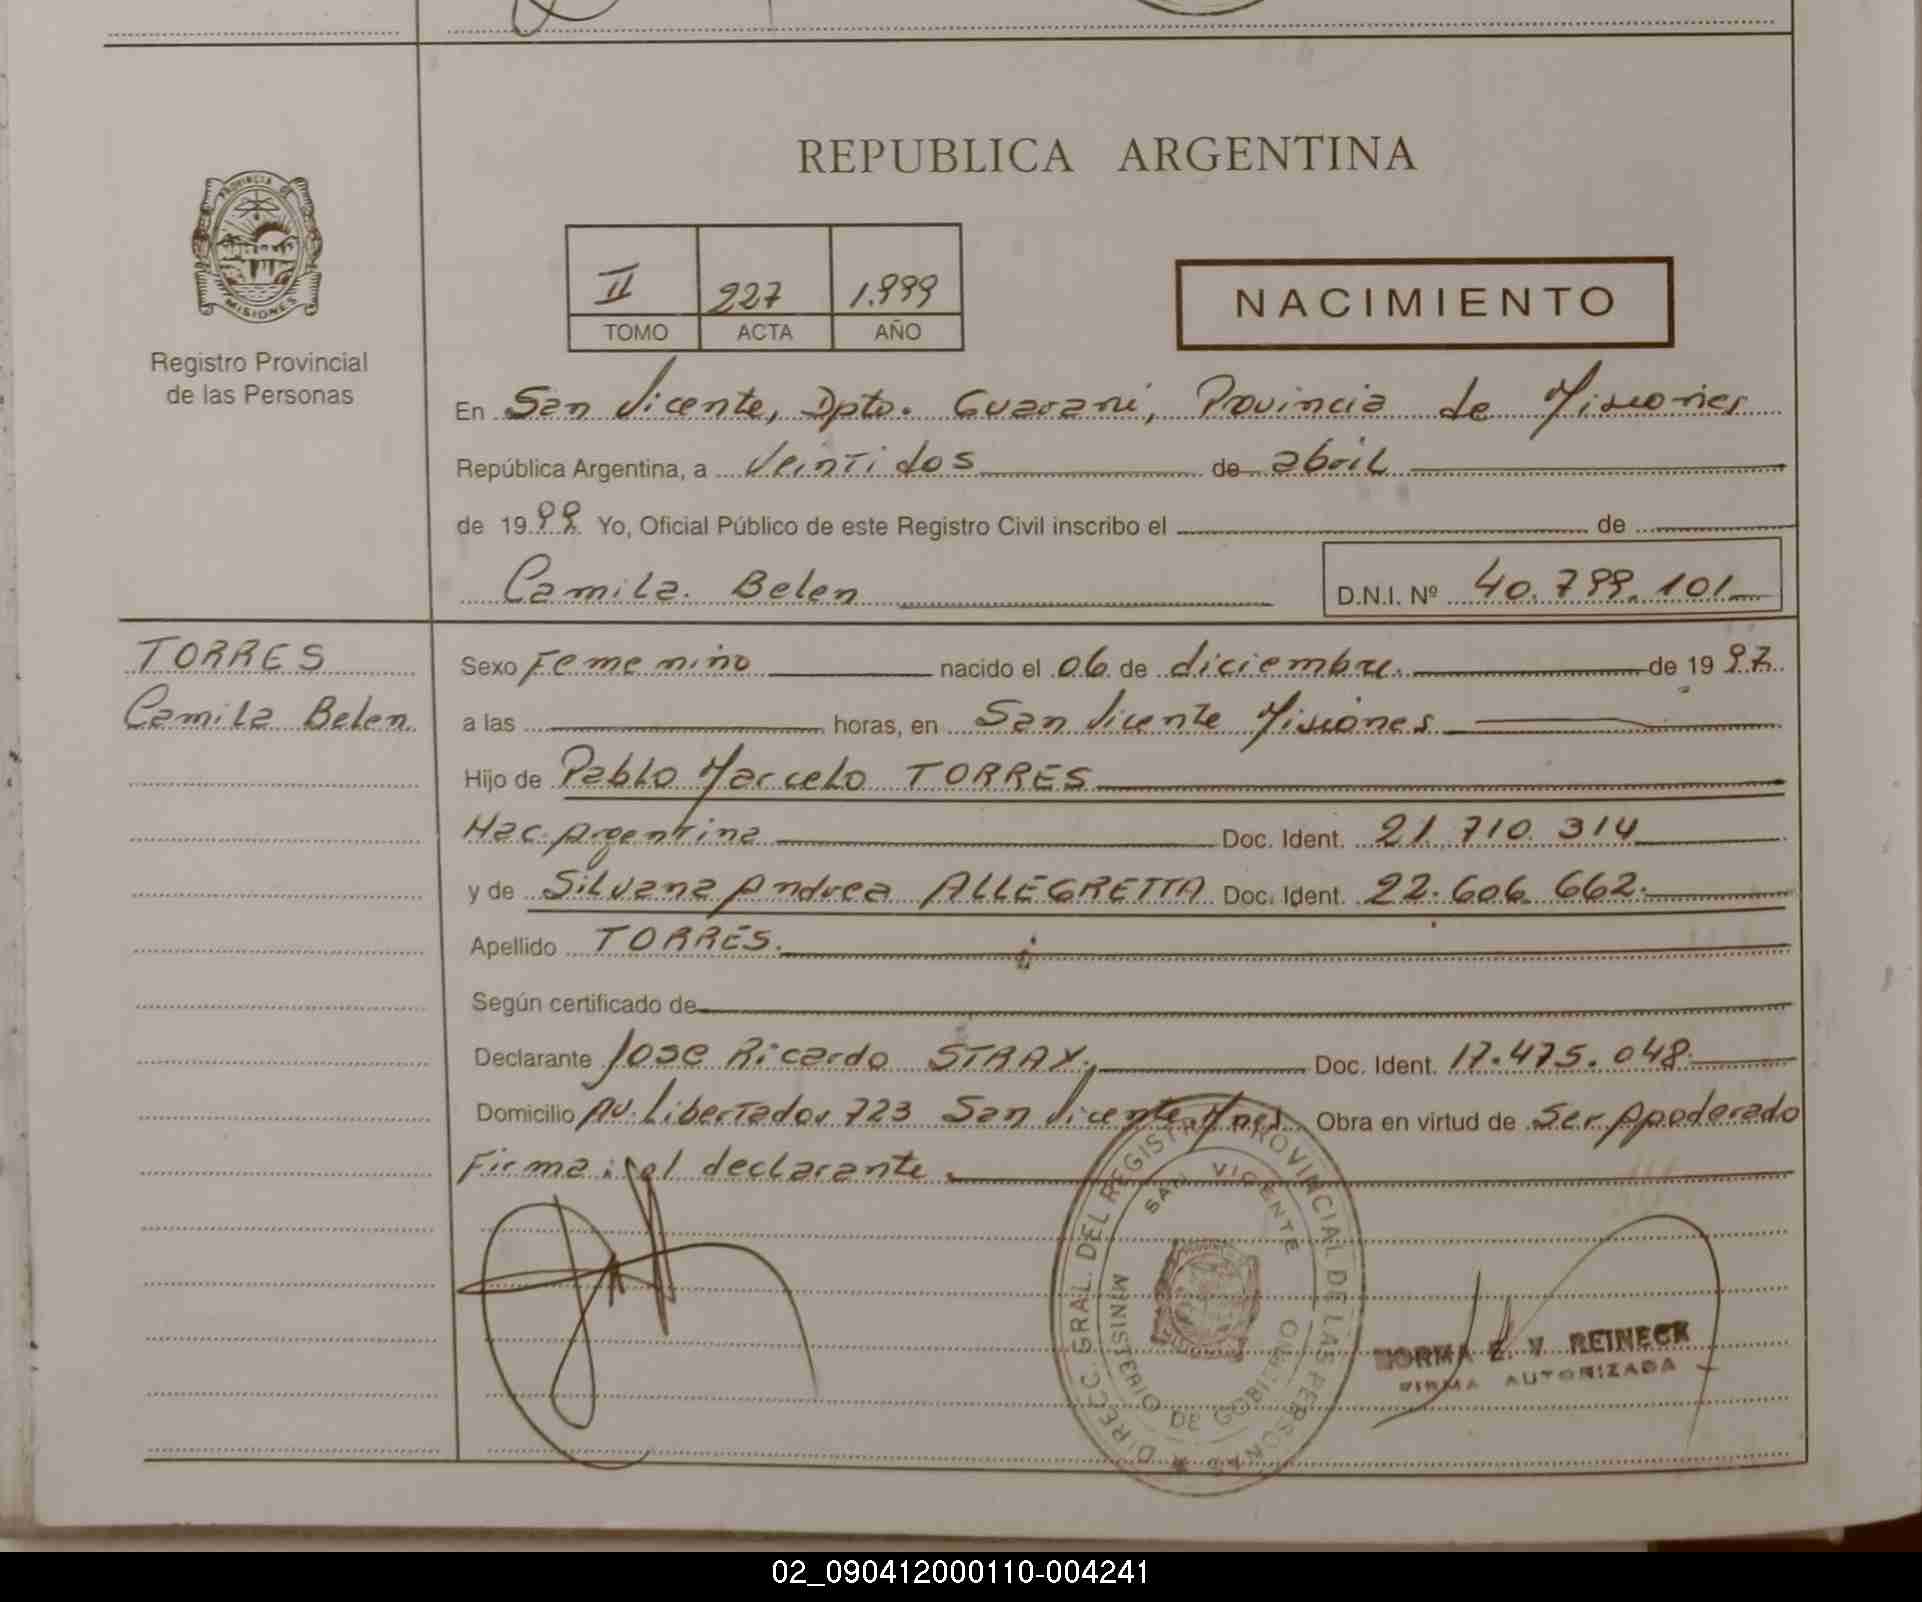 REPUBLICA ARGENTINA
PROVINCIA DE
MISIONES
Registro Provincial
de las Personas
II 227 1.999
TOMO ACTA AÑO
NACIMIENTO
En San Vicente, Dpto. Guarani, Provincia de Misiones
República Argentina, a Veinti dos de abril
de 1999 Yo, Oficial Público de este Registro Civil inscribo el de
Camila Belen D.N.I. Nº 40.799.101
TORRES
Camila Belen.
Sexo Femenino nacido el 06 de diciembre. de 1997
a las horas, en San Vicente Misiones
Hijo de Pablo Marcelo TORRES
Nac. Argentina Doc. Ident. 21.710.314
y de Silvana Andrea ALLEGRETTA Doc. Ident. 22.606.662.
Apellido TORRES.
Según certificado de
Declarante Jose Ricardo STRAX. Doc. Ident. 17.475.048
Domicilio Av. Libertador 723 San Vicente Mnes. Obra en virtud de Ser Apoderado
Firma: el declarante.
DIRECC. GRAL. DEL REGISTRO PROVINCIAL DE LAS PERSONAS
SAN VICENTE
MINISTERIO DE GOBIERNO
NORMA E. V. REINECK
FIRMA AUTORIZADA
02_090412000110-004241